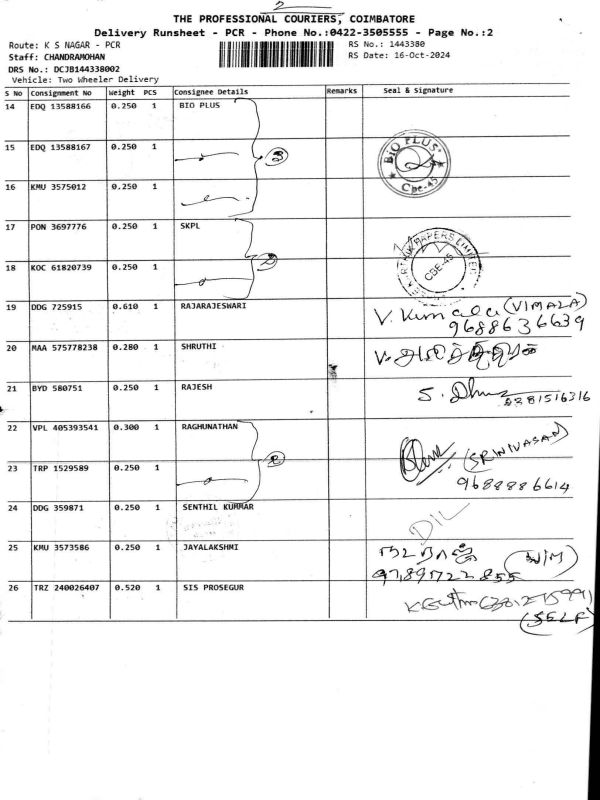 2
THE PROFESSIONAL COURIERS, COIMBATORE
Delivery Runsheet - PCR - Phone No.:0422-3505555 - Page No.:2
Route: K S NAGAR - PCR RS No.: 1443380
Staff: CHANDRAMOHAN RS Date: 16-Oct-2024
DRS No.: DCJB144338002
Vehicle: Two Wheeler Delivery
S No Consignment No Weight PCS Consignee Details Remarks Seal & Signature
14 EDQ 13588166 0.250 1 BIO PLUS
15 EDQ 13588167 0.250 1 3 BIO PLUS Cbe-45
16 KMU 3575012 0.250 1
17 PON 3697776 0.250 1 SKPL
18 KOC 61820739 0.250 1 PAPERS LIMITED CBE-45
19 DDG 725915 0.610 1 RAJARAJESWARI V. Kumala (VIMALA)
9688636639
20 MAA 575778238 0.280 1 SHRUTHI
21 BYD 580751 0.250 1 RAJESH S.
22 VPL 405393541 0.300 1 RAGHUNATHAN (SRINIVASAN)
23 TRP 1529589 0.250 1 2 9688886614
24 DDG 359871 0.250 1 SENTHIL KUMAR DIL
25 KMU 3573586 0.250 1 JAYALAKSHMI
9789722855
26 TRZ 240026407 0.520 1 SIS PROSEGUR
(SELF)